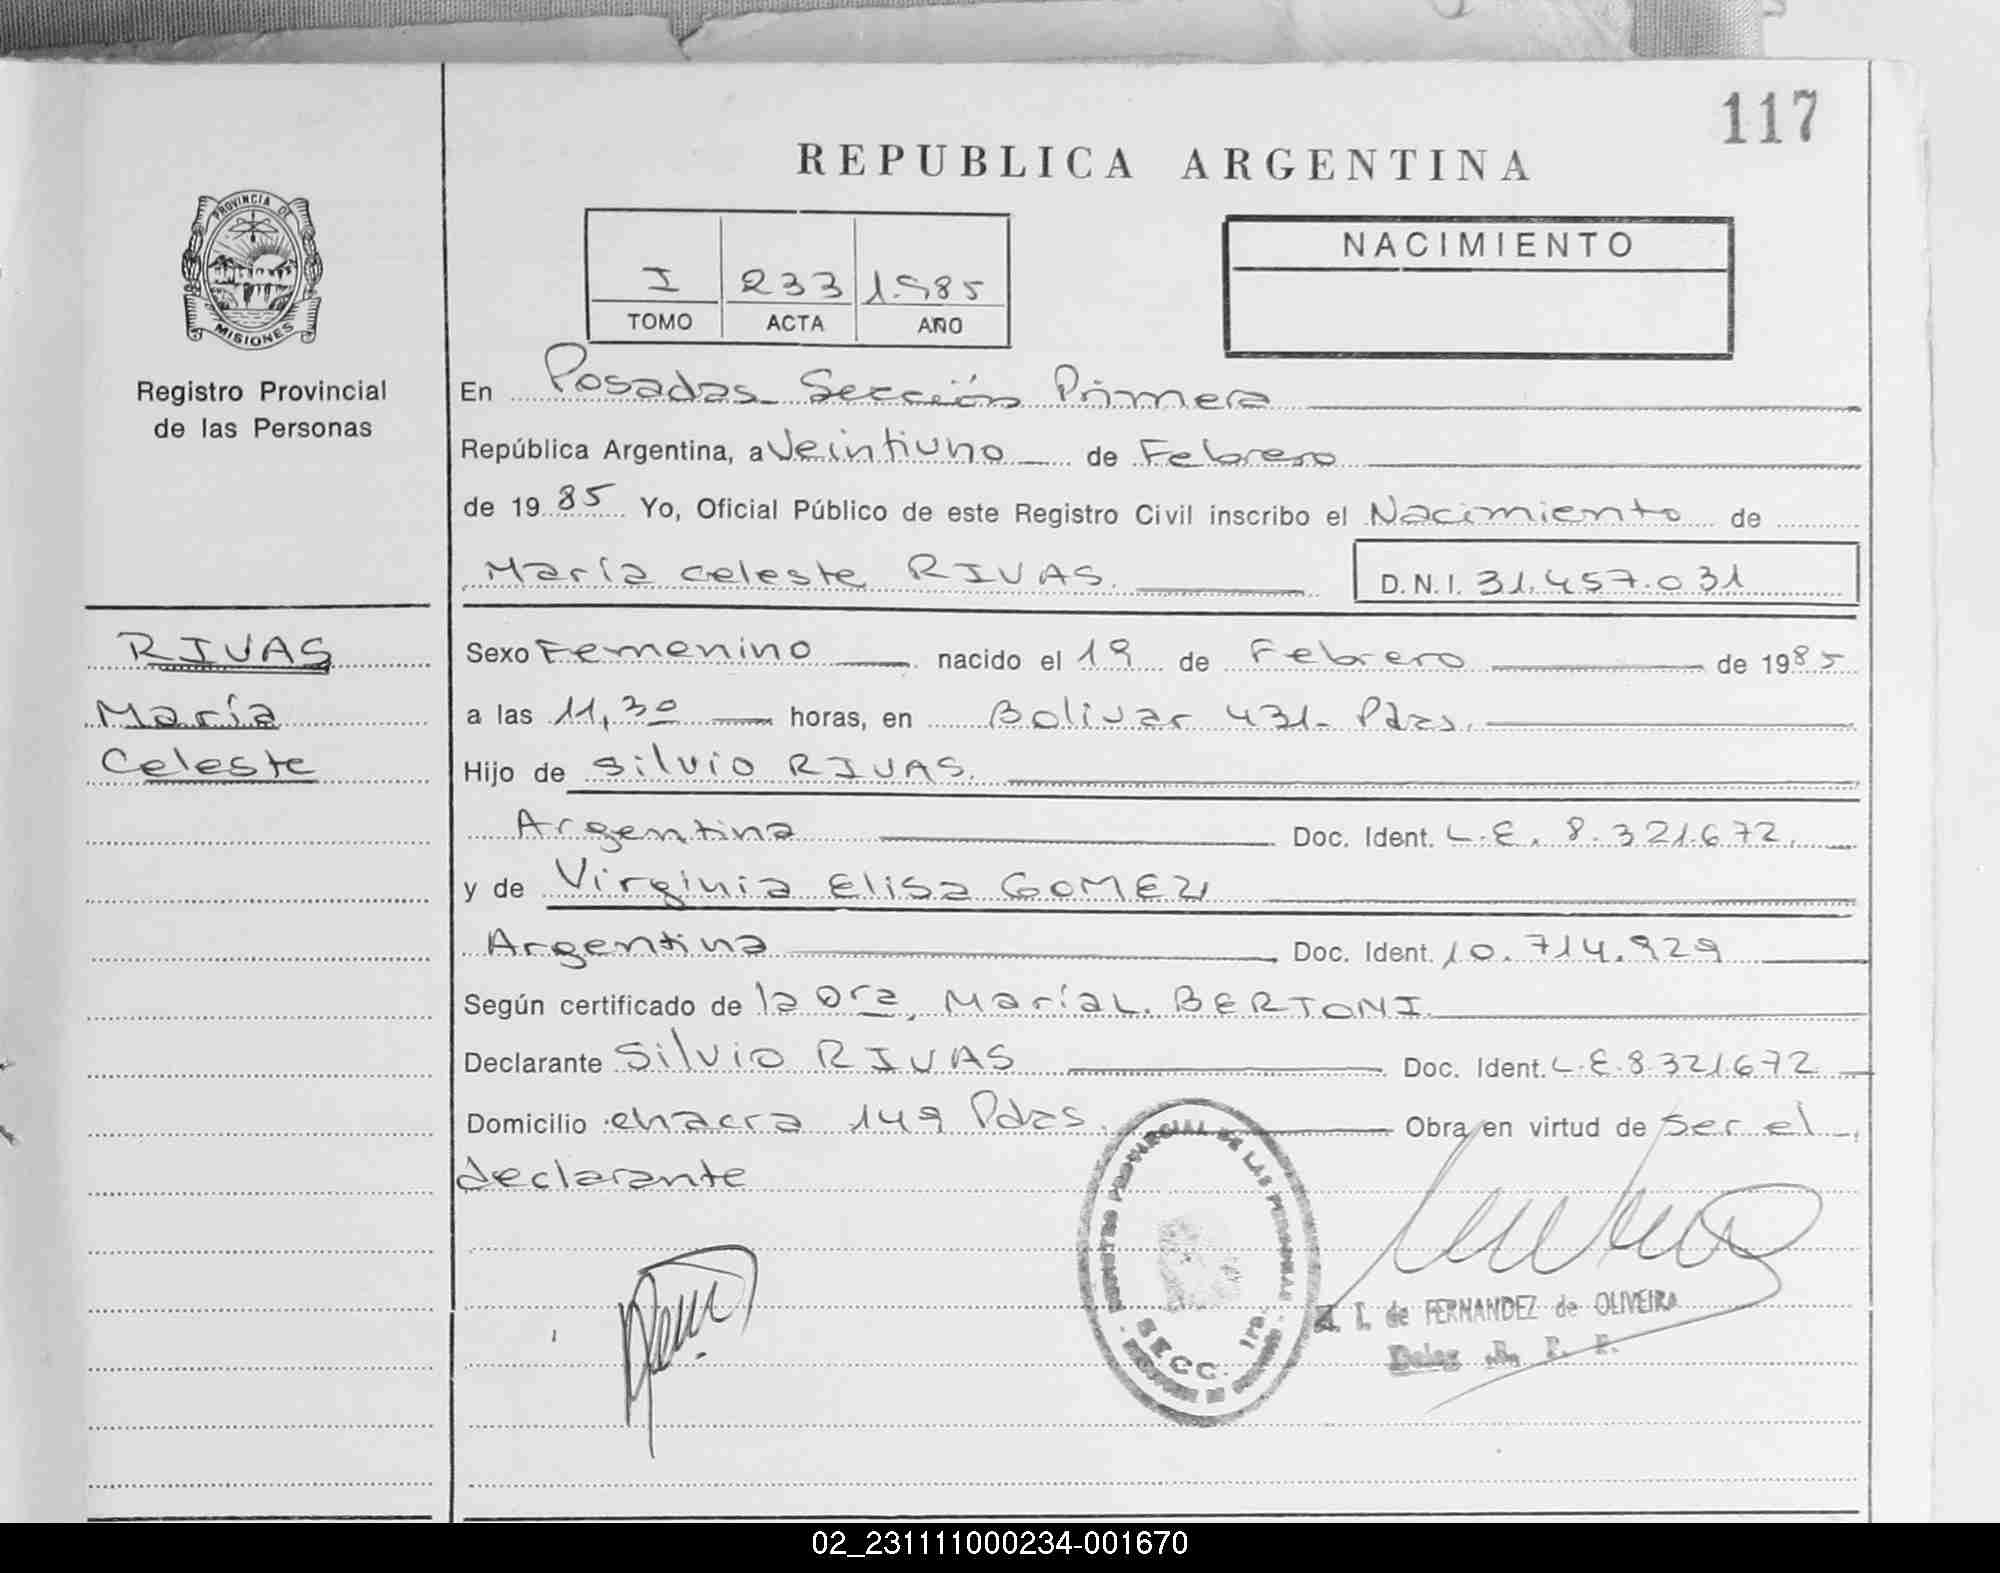 117
REPUBLICA ARGENTINA
PROVINCIA DE
MISIONES
Registro Provincial
de las Personas
I 233 1.985
TOMO ACTA AÑO
NACIMIENTO
En Posadas Sección Primera
República Argentina, a Veintiuno de Febrero
de 19 85 Yo, Oficial Público de este Registro Civil inscribo el Nacimiento de
María Celeste RIVAS. D.N.I. 31.457.031
RIVAS
María
Celeste
Sexo Femenino nacido el 19 de Febrero de 1985
a las 11,30 horas, en Bolivar 431- Pdas.
Hijo de Silvio RIVAS.
Argentina Doc. Ident. L.E. 8.321.672.
y de Virginia Elisa GOMEZ
Argentina Doc. Ident. 10.714.929
Según certificado de la Dra. María L. BERTONI
Declarante Silvio RIVAS Doc. Ident. L.E.8321672
Domicilio chacra 149 Pdas. Obra en virtud de ser el
declarante
REGISTRO PROVINCIAL DE LAS PERSONAS
SECC. 1ra.
I. de FERNANDEZ de OLIVEIRA
02_231111000234-001670